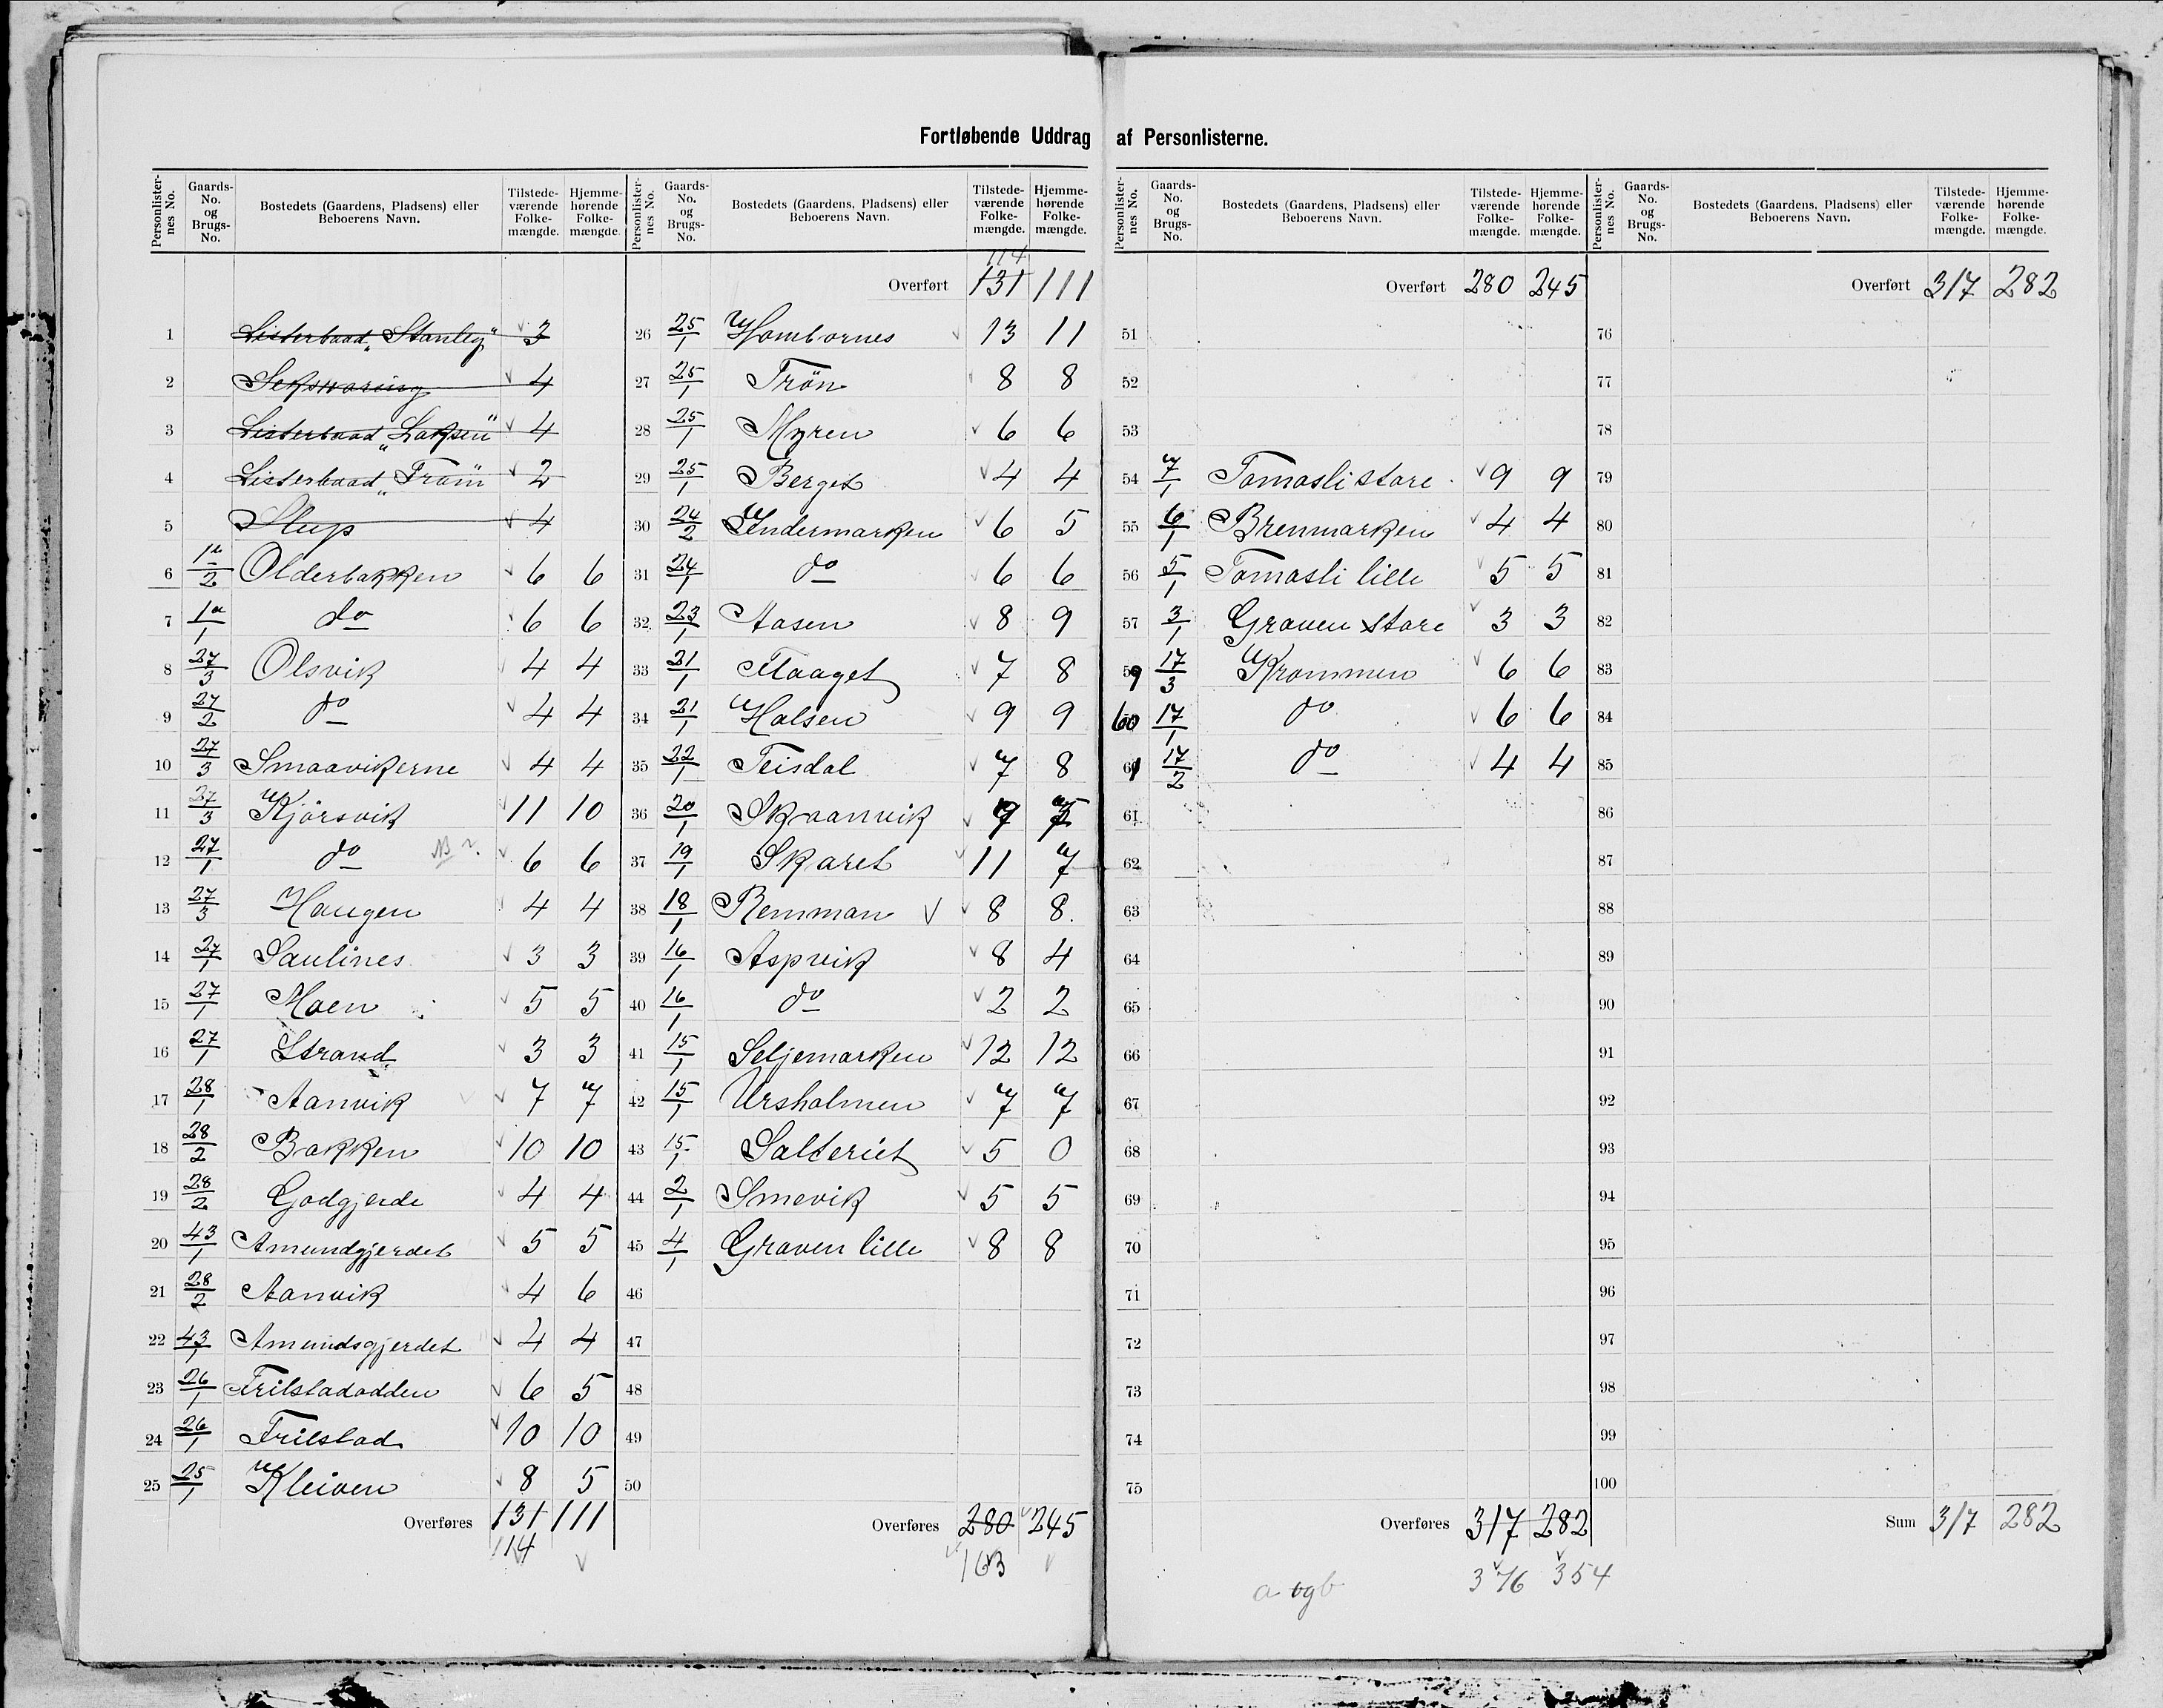 Fortløbende Uddrag af Personlisterne.
Personlister-nes No. Gaards-No. og Brugs-No. Bostedets (Gaardens, Pladsens) eller Beboerens Navn. Tilstede-værende Folke-mængde. Hjemme-hørende Folke-mængde.
1 Listerbaad „Stanley" 3
2
4
3 Listerbaad „Laksen" 4
4 Listerbaad „Fram" 2
5 Slup 4
6 1a/2 Olderbakken 6 6
7 1a/1 do 6 6
8 27/3 Olsvik 4 4
9 27/2 do 4 4
10 27/3 Smaavikerne 4 4
11 27/3 Kjørsvik 11 10
12 27/1 do 6 6
13 27/3 Haugen 4 4
14 27/1 Saulines 3 3
15 27/1 Moen 5 5
16 27/1 Strand 3 3
17 28/1 Aanvik 7 7
18 28/2 Bakken 10 10
19 28/2 Godgjerde 4 4
20 43/1 Amundgjerdet 5 5
21 28/2 Aanvik 4 6
22 43/1 Amundsgjerdet 4 4
23 26/1 Frilstadodden 6 5
24 26/1 Frilstad 10 10
25 25/1 Kleiven 8 5
Overføres 131 111
114
Personlister-nes No. Gaards-No. og Brugs-No. Bostedets (Gaardens, Pladsens) eller Beboerens Navn. Tilstede-værende Folke-mængde. Hjemme-hørende Folke-mængde.
114
Overført 131 111
26 25/1 Hombornes 13 11
27 25/1 Trøn 8 8
28 25/1 Myren 6 6
29 25/1 Berget 4 4
30 24/2 Indermarken 6 5
31 24/1 do 6 6
32 23/1 Aasen 8 9
33 21/1 Flaaget 7 8
34 21/1 Halsen 9 9
35 22/1 Teisdal 7 8
36 20/1 Skaanvik 9
37 19/1 Skaret 11 7
38 18/1 Remman 8 8
39 16/1 Aspvik 8 4
40 16/1 do 2 2
41 15/1 Seljemarken 12 12
42 15/1 Ursholmen 7 7
43 15/1 Salteriet 5 0
44 2/1 Smevik 5 5
45 4/1 Graven lille 8 8
46
47
48
49
50
Overføres 280 245
163
Personlister-nes No. Gaards-No. og Brugs-No. Bostedets (Gaardens, Pladsens) eller Beboerens Navn. Tilstede-værende Folke-mængde. Hjemme-hørende Folke-mængde.
Overført 280 245
51
52
53
54 7/1 Tomasli store 9 9
55 6/1 Bremmarken 4 4
56 5/1 Tomasli lille 5 5
57 3/1 Graven store 3 3
59 17/3 Krommen 6 6
60 17/1 do 6 6
61 17/2 do 4 4
61
62
63
64
65
66
67
68
69
70
71
72
73
74
75
Overføres 317 282
a og b 376 354
Personlister-nes No. Gaards-No. og Brugs-No. Bostedets (Gaardens, Pladsens) eller Beboerens Navn. Tilstede-værende Folke-mængde. Hjemme-hørende Folke-mængde.
Overført 317 282
76
77
78
79
80
81
82
83
84
85
86
87
88
89
90
91
92
93
94
95
96
97
98
99
100
Sum 317 282